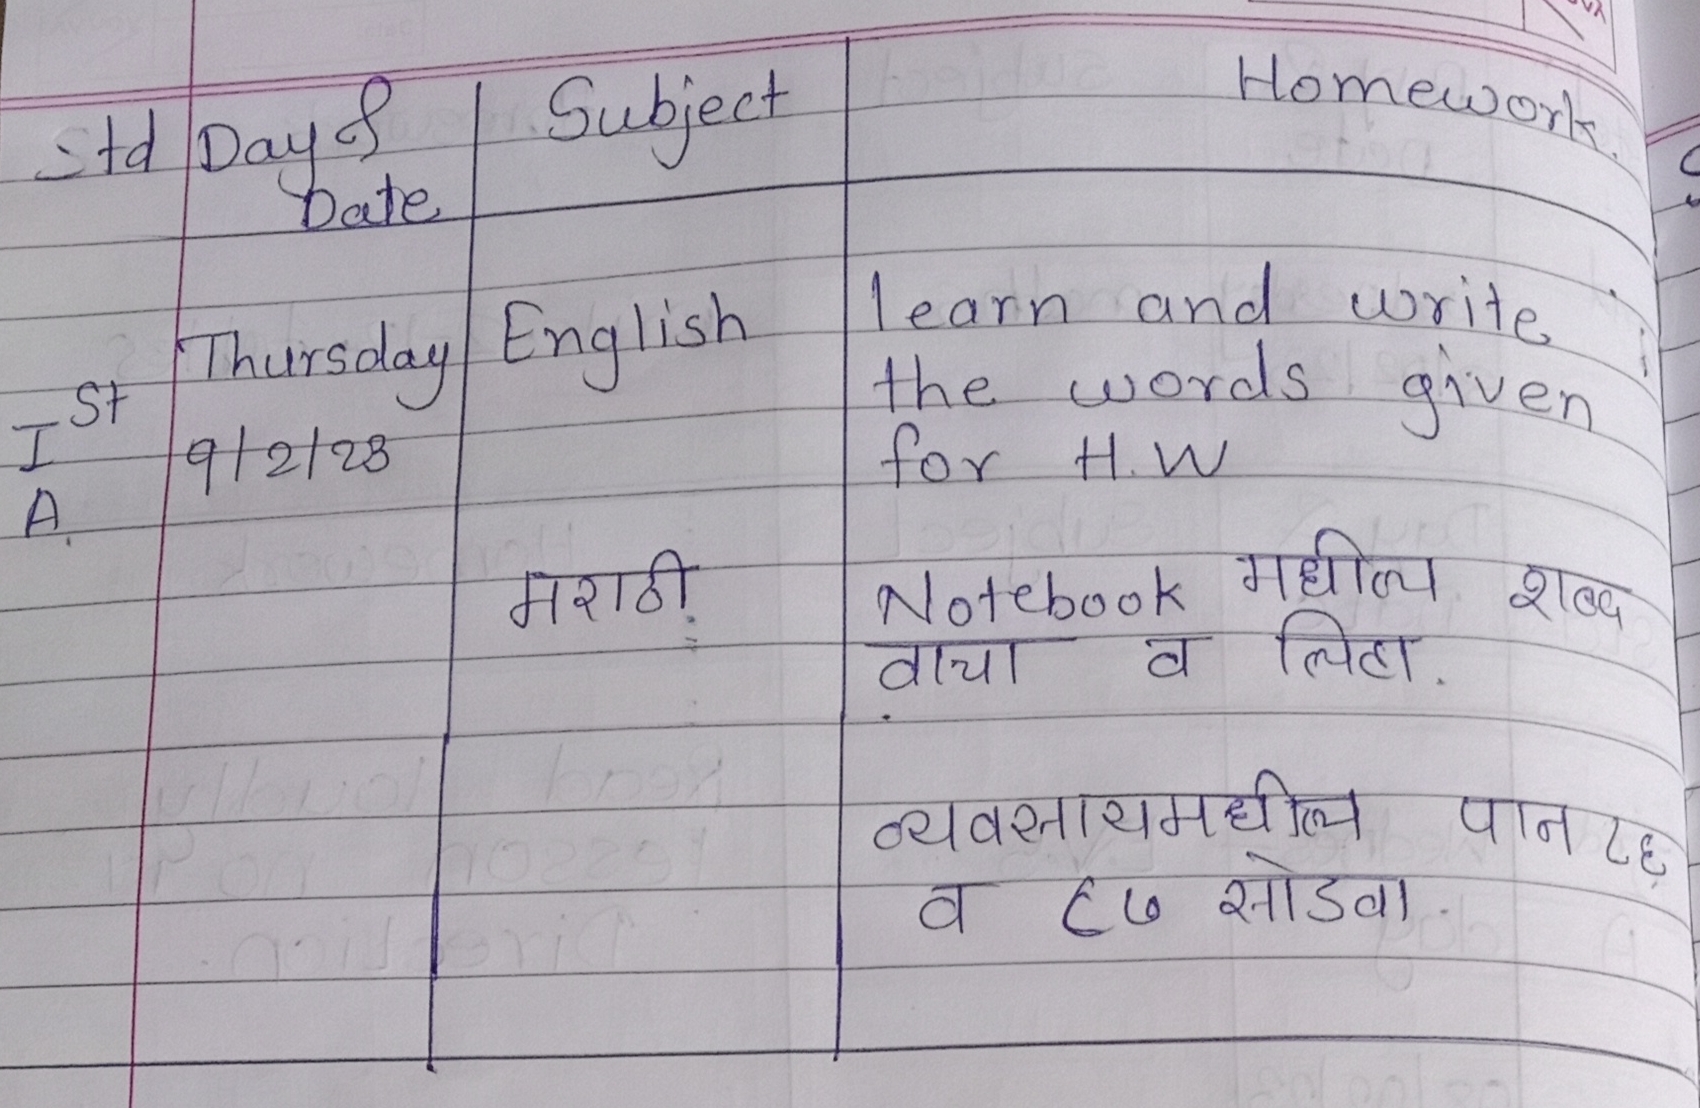 Std Day & Date Subject Homework.
Ist A. Thursday 9/2/23 English learn and write
the words given
for H.W
मराठी Notebook मधील शब्द
वाचा व लिहा.
व्यवसायमधील पान ८६
व ८७ सोडवा.